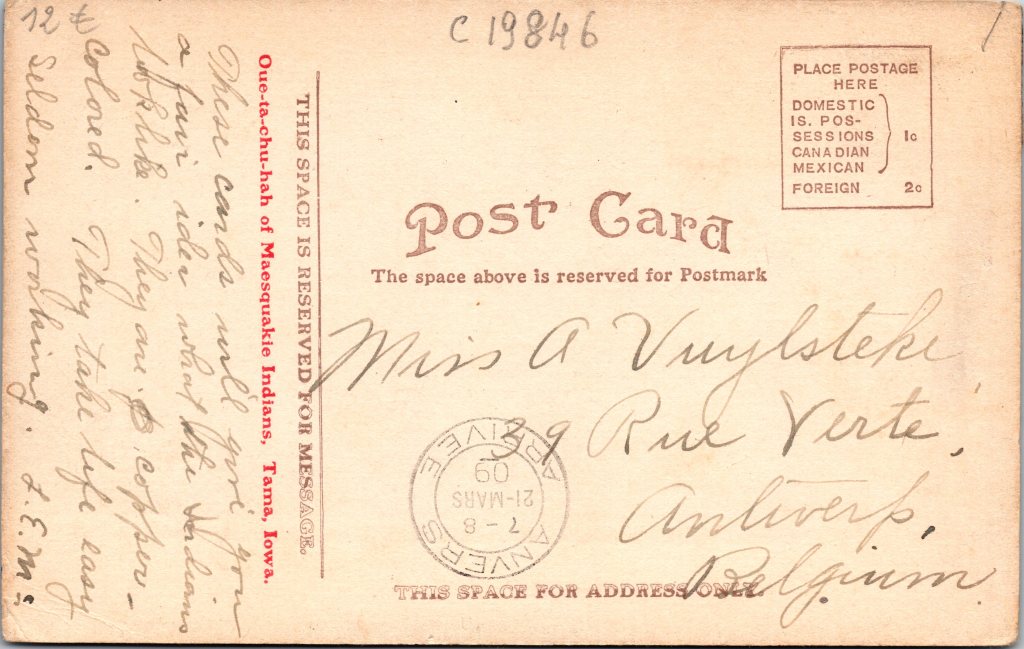 C 19846
PLACE POSTAGE
HERE
DOMESTIC
IS. POS-
SESSIONS
CANADIAN
MEXICAN
1c
FOREIGN 2c
Post Card
The space above is reserved for Postmark
Miss A Vuylsteke
39 Rue Verte,
Antwerp,
Belgium.
ANVERS
7-8
21-MARS
09
ARRIVEE
THIS SPACE FOR ADDRESS ONLY
THIS SPACE IS RESERVED FOR MESSAGE.
Oue-ta-chu-hah of Maesquakie Indians, Tama, Iowa.
These cards will give you
a fair ider what the Indians
look like. They are copper-
colored. They take life easy
Seldom working. L.E.M.
12